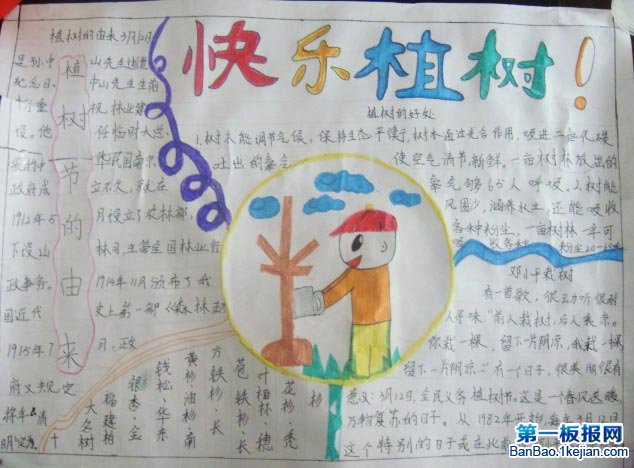 快乐植树！
植树节的由来
植树的由来3月12日
是孙中山先生逝世
纪念日。中山先生生前
十分重视林业建
设。他任临时大总
统的中华民国南京
政府成立不久，就在
1912年5月设立了农林部，
下设山林司，主管全国林业行
政事务。1914年11月颁布了我
国近代史上第一部《森林法》
1915年7月，政
府又规定
将每年清
明
植树的好处
1.树木能调节气候，保持生态平衡，树木通过光合作用，吸进二氧化碳
吐出的氧气，使空气清节新鲜，一亩树林放出的
氧气够65人呼吸。2.树能
风固沙，涵养水土，还能吸收
各种粉尘，一亩树林一年可
各种粉尘20-60
邓小平栽树
有一首歌，很生动，听很耐
人寻味，"前人栽树，后人乘凉。
你栽一棵，留下一片阴凉，我栽一棵
留下一片阴凉，"有一个日子，很美丽很有
意义：3月12日，全民义务植树节。这是一个春风送暖
万物复苏的日子。从1982年开始每年3月12日
这个特别的日子或在此前
十大名树
福建柏
银杏·金
钱松·华东
黄杉·油杉·南
方铁杉·长
苞铁杉·长
叶榧林·穗
花杉·秃
杉
第一板报网
BanBao.1kejian.com